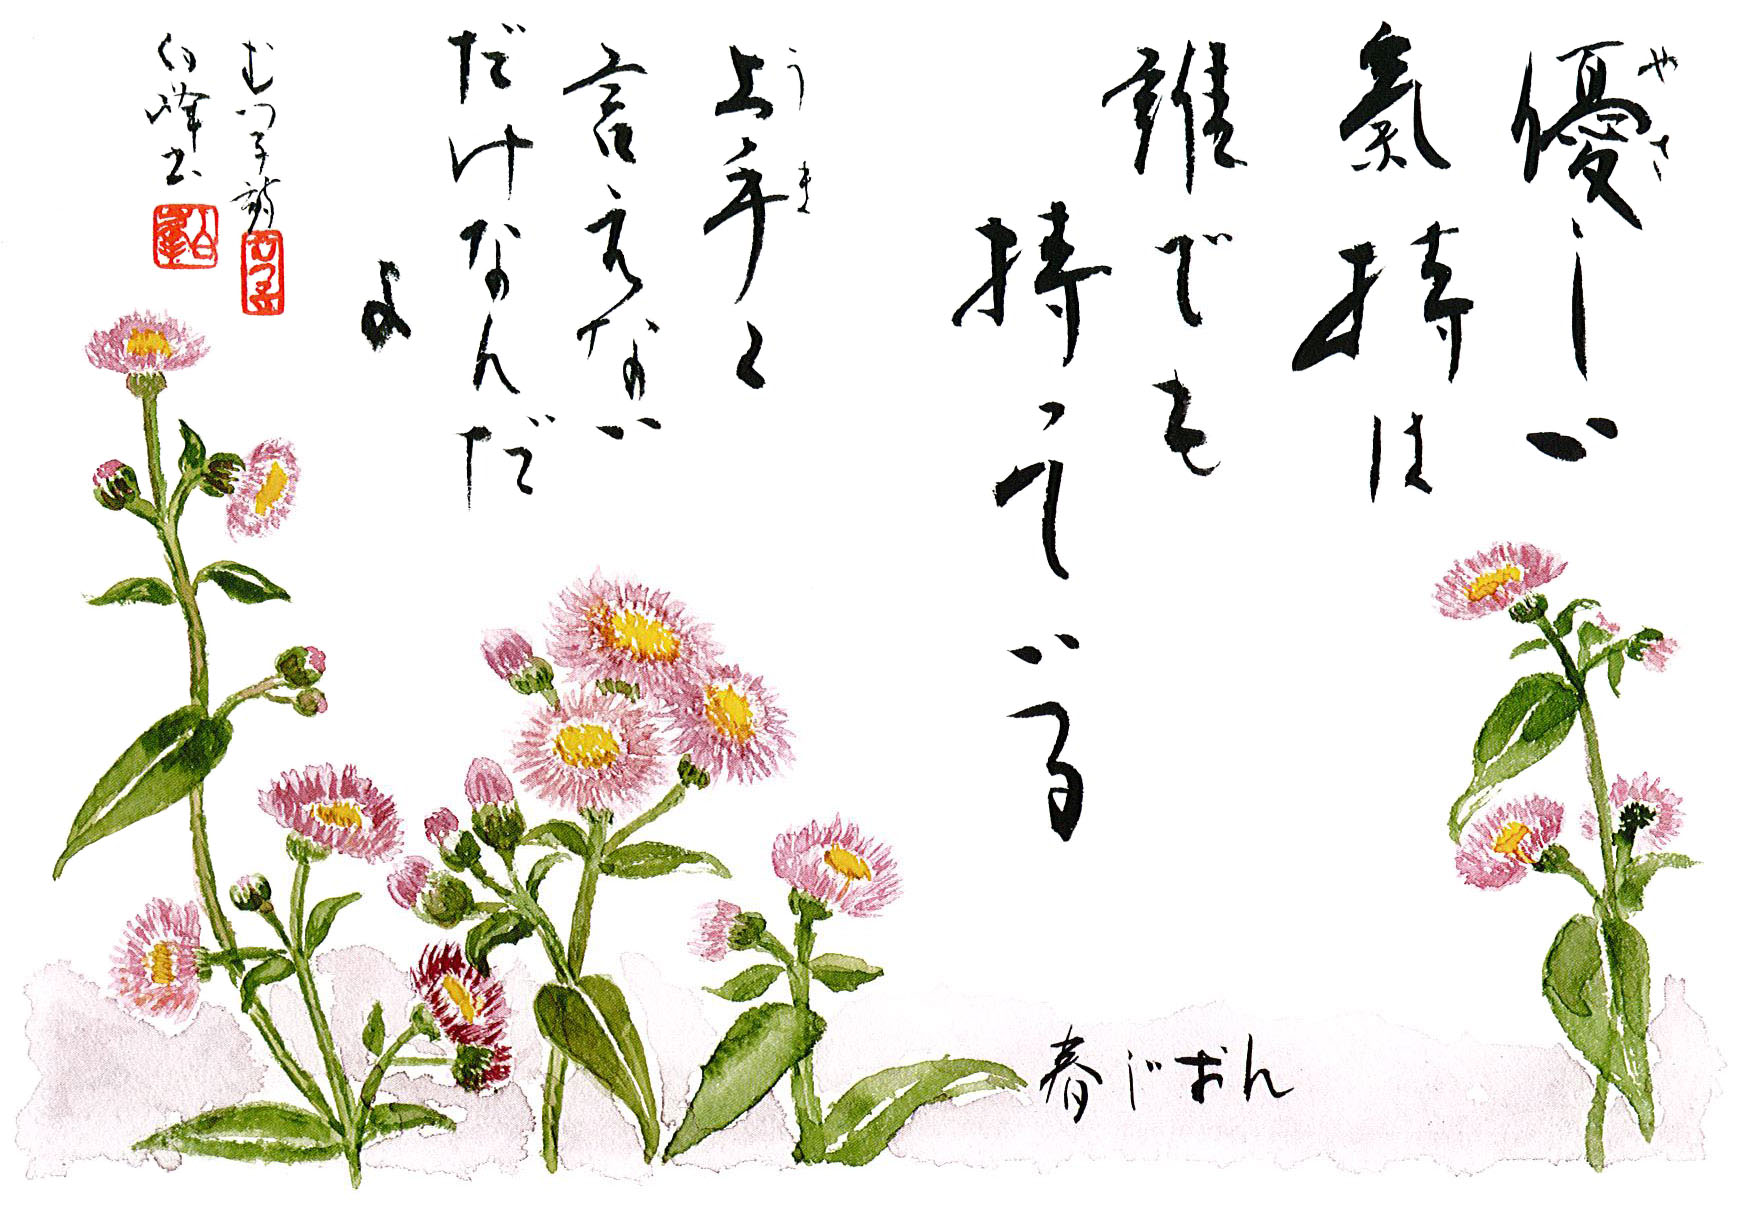 優しい
氣持は
誰でも
持っている
上手く
言えない
だけなんだ
よ
春じおん
やさ
うま
白峰書